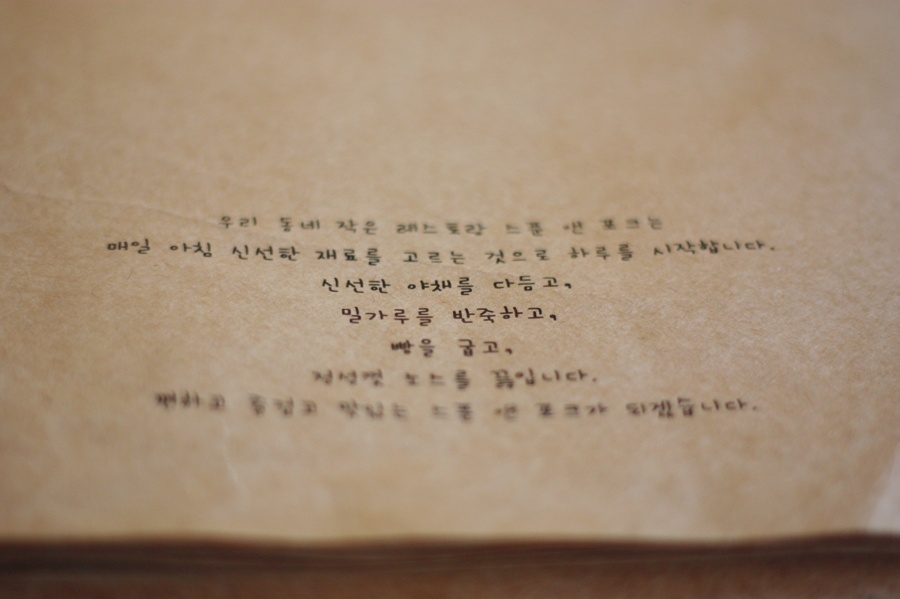 우리 동네 작은 레스토랑 스푼 앤 포크는
매일 아침 신선한 재료를 고르는 것으로 하루를 시작합니다.
신선한 야채를 다듬고,
밀가루를 반죽하고,
빵을 굽고,
정성껏 소스를 끓입니다.
편하고 즐겁고 맛있는 스푼 앤 포크가 되겠습니다.